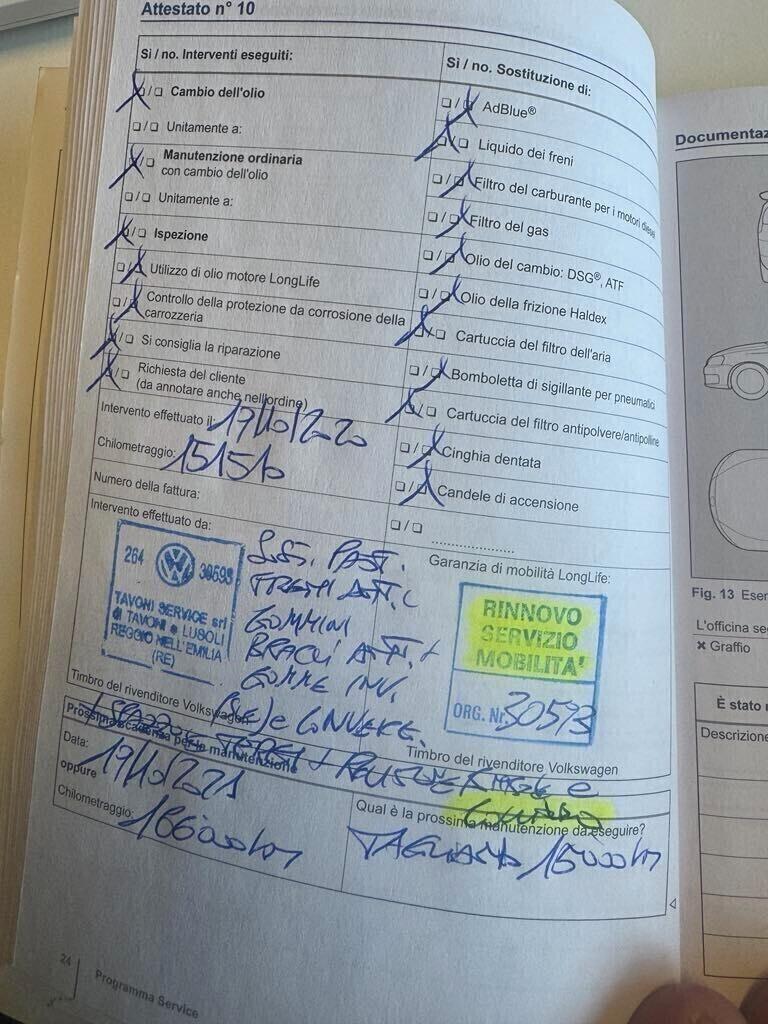 Attestato n° 10
Sì / no. Interventi eseguiti:
Cambio dell'olio
Unitamente a:
Manutenzione ordinaria
con cambio dell'olio
Unitamente a:
Ispezione
Utilizzo di olio motore LongLife
Controllo della protezione da corrosione della
carrozzeria
Si consiglia la riparazione
Richiesta del cliente
(da annotare anche nell'ordine)
Intervento effettuato il: 19/10/2020
Chilometraggio:
Numero della fattura:
Intervento effettuato da:
Sì / no. Sostituzione di:
AdBlue®
Liquido dei freni
Filtro del carburante per i motori diesel
Filtro del gas
Olio del cambio: DSG®, ATF
Olio della frizione Haldex
Cartuccia del filtro dell'aria
Bomboletta di sigillante per pneumatici
Cartuccia del filtro antipolvere/antipolline
Cinghia dentata
Candele di accensione
Garanzia di mobilità LongLife:
264 30593
TAVONI SERVICE srl
di TAVONI e LUSOLI
REGGIO NELL'EMILIA
(RE)
SOS. PAST.
FRENI ANT. 
GOMMINI
BRACCI ANT. +
GOMME INV.
RINNOVO
SERVIZIO
MOBILITA'
ORG. Nr. 30593
Timbro del rivenditore Volkswagen
Timbro del rivenditore Volkswagen
Prossima scadenza per la manutenzione
Data: 19/10/2021
oppure
Chilometraggio: 166000 km
Qual è la prossima manutenzione da eseguire?
TAGLIANDO 15000 km
24
Programma Service
Documentaz
Fig. 13
L'officina se
× Graffio
È stato
Descrizione